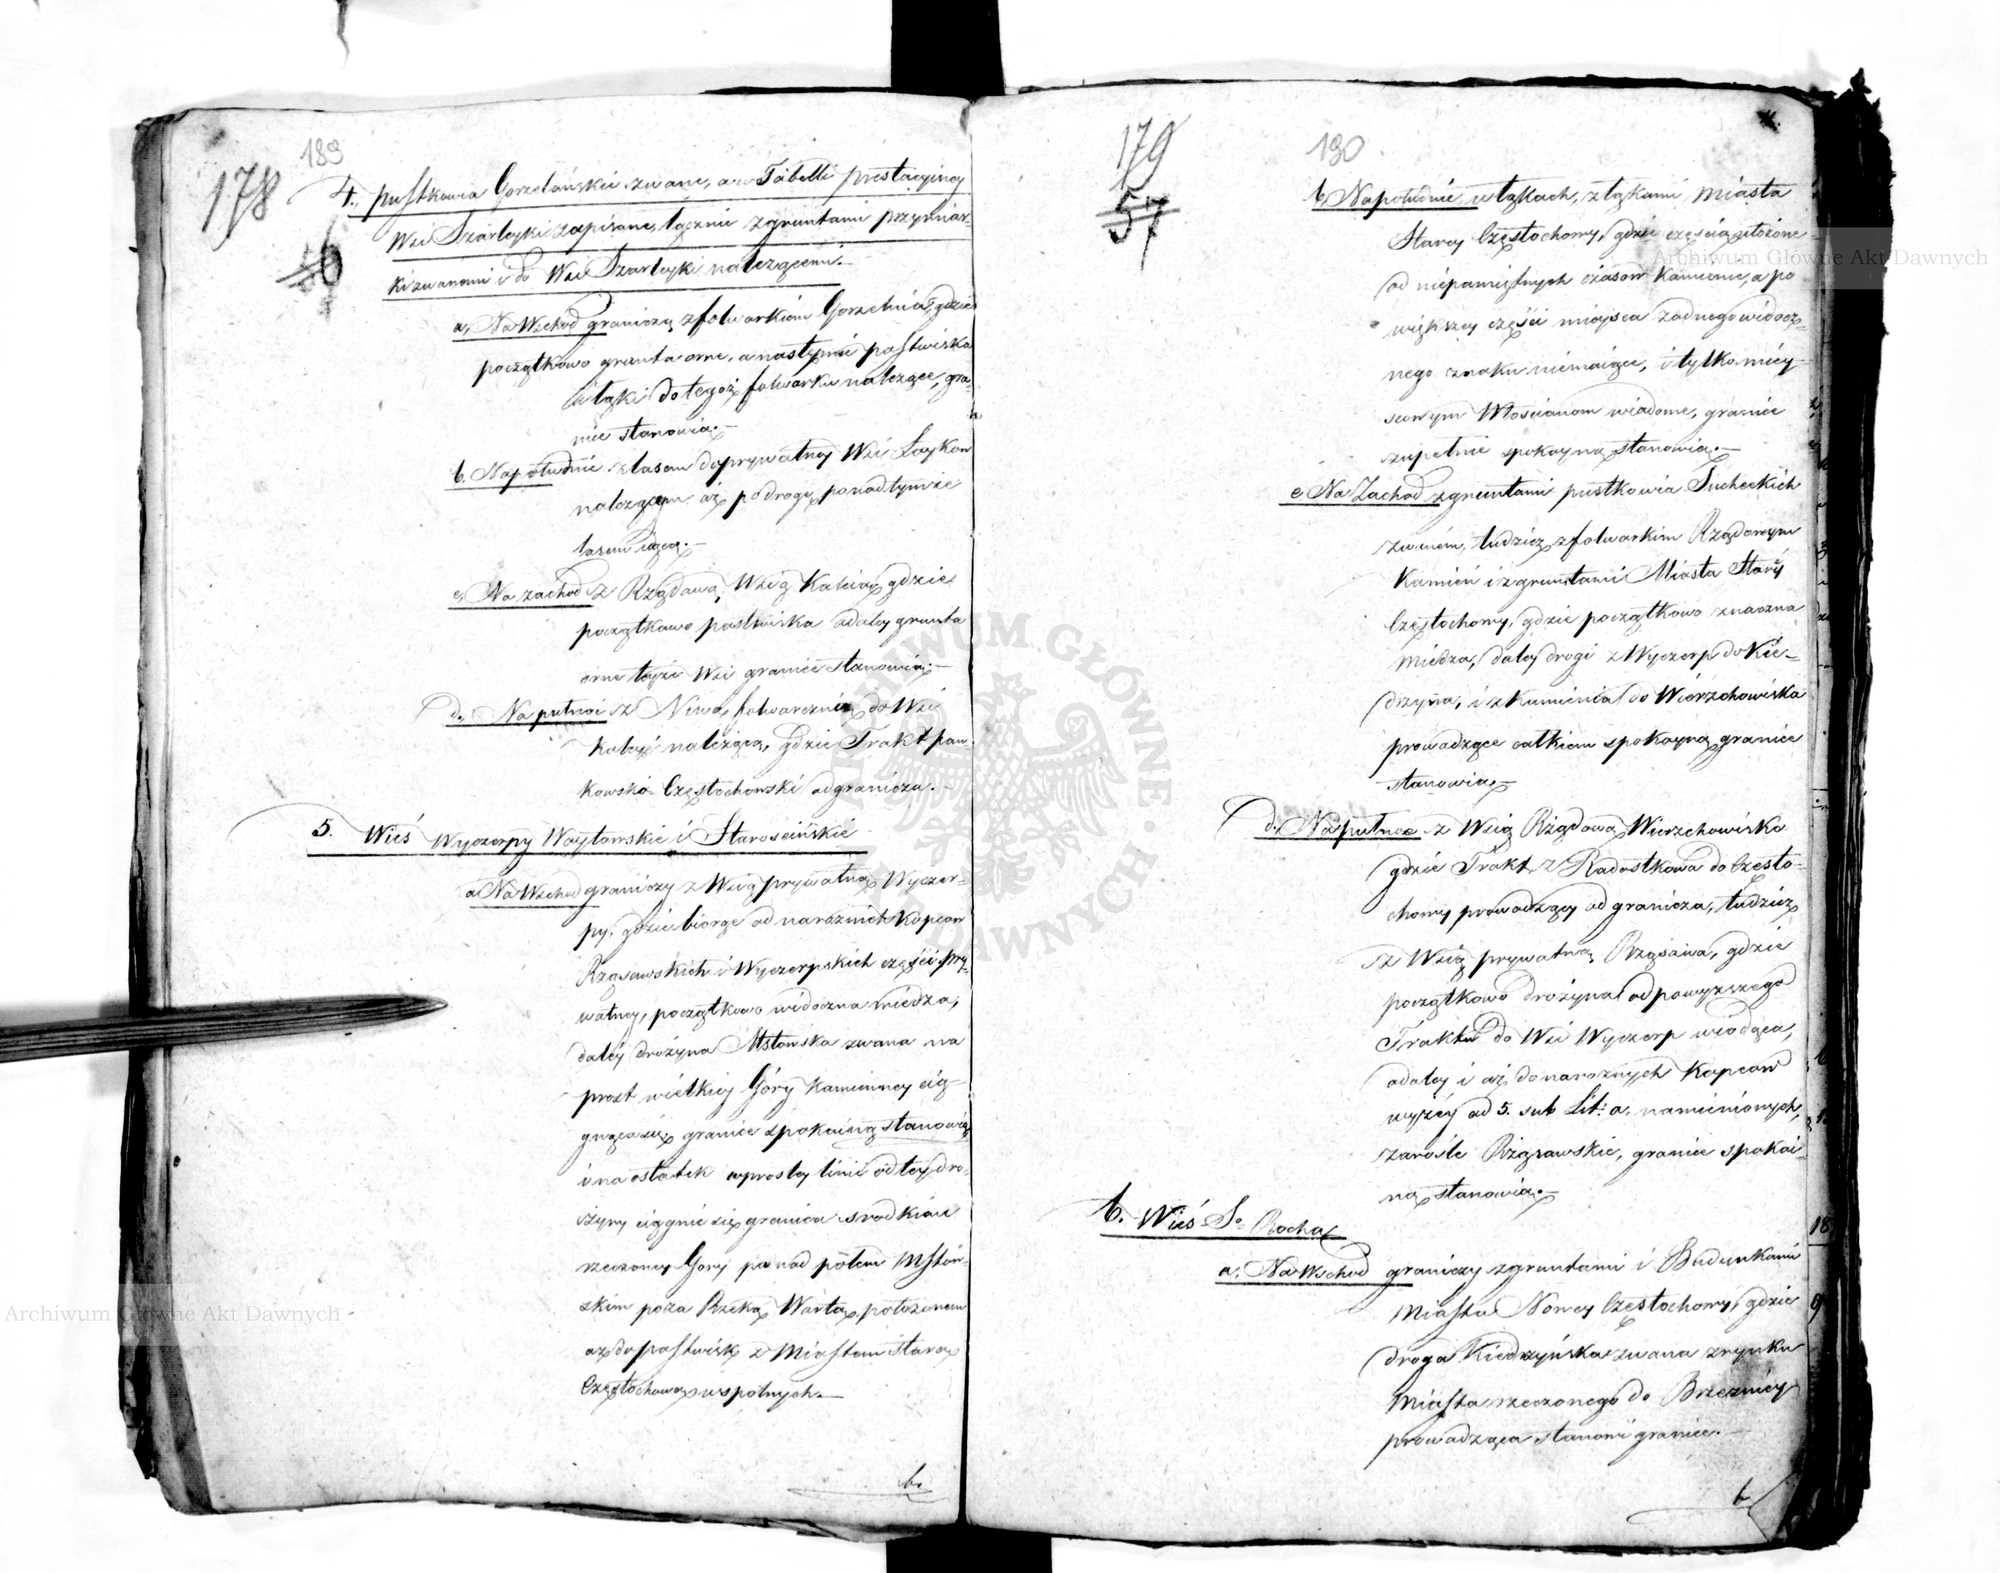 178
189
56
4. pustkowia Gorzelańskie zwane, a w Tabelli prestacyjney
Wsi Szarleyki zapisane, łącznie z gruntami przymiar-
ki zwanemi i do Wsi Szarleyki należącemi.—
a, Na Wschód graniczą z folwarkiem Gorzelnia, gdzie
początkowo grunta orne, a następnie pastwiska
i łąki do tegoż folwarku należące, gra-
nice stanowią.—
b. Na południe z lasem do prywatney Wsi Łoykow
należącym aż po drogę ponad tymże
lasem idącą.—
c. Na zachód z Rządową Wsią Kaleią, gdzie
początkowo pastwiska a daley grunta
orne teyże Wsi granice stanowią.—
d. Na północ z Niwą folwarczną do Wsi
Kaleyi należącą, gdzie Trakt pan-
kowsko Częstochowski odgranicza.—
5. Wieś Wyczerpy Woytowskie i Starościńskie
a Na Wschód graniczy z Wsią prywatną Wyczer-
py, gdzie biorąc od narożnich Kopcow
Rząsawskich i Wyczerpskich części pry-
watney, początkowo widoczna miedza,
daley drożyna Mstowska zwana na
prost wielkiey Góry Kamienney cią-
gnąca się granice spokoiną stanowią
i na ostatek w prostey linii od tey dro-
żyny ciągnie się granica środkiem
rzeczoney Gory ponad polem Mstow-
skim poza Rzeką Wartą położonem
aż do pastwisk z Miastem Starą
Częstochową wspólnych.—
b.
179
190
57
b, Na południe w łąkach, z łąkami Miasta
Starey Częstochowy, gdzie częścią ułożone
od niepamiętnych czasow Kamienie, a po
większey części miejsca żadnego widocz-
nego znaku niemaiące, i tylko miey-
scowym Włościanom wiadome, granice
zupełnie spokoyną stanowią.—
c Na Zachód z gruntami pustkowia Sucheckich
zwanem, tudzież z folwarkiem Rządowym
Kamień i z gruntami Miasta Starey
Częstochowy, gdzie początkowo znaczna
Miedza, daley drogi z Wyczerp do Kie-
drzyna, i z Kamienia do Wierzchowiska
prowadzące całkiem spokoyną granice
stanowią.—
d. Na północ z Wsią Rządową Wierzchowisko
gdzie Trakt z Radostkowa do Często-
chowy prowadzący odgranicza, tudzież
z Wsią prywatną Rząsawa, gdzie
początkowo drożyna od powyższego
Traktu do Wsi Wyczerp wiodąca,
a daley i aż do narożnych Kopcow
wyżey ad 5. sub Lit: a. namienionych,
zarośle Rząsawskie, granice spokoi-
ną stanowią.—
6. Wieś S° Rocha
a, Na Wschód graniczy z gruntami i Budunkami
Miasta Nowey Częstochowy, gdzie
droga Kiedrzyńska zwana z rynku
Miasta rzeczonego do Brzeźnicy
prowadząca stanowi granice.—
b
18
Archiwum Główne Akt Dawnych
Archiwum Główne Akt Dawnych
ARCHIWUM GŁÓWNE AKT DAWNYCH